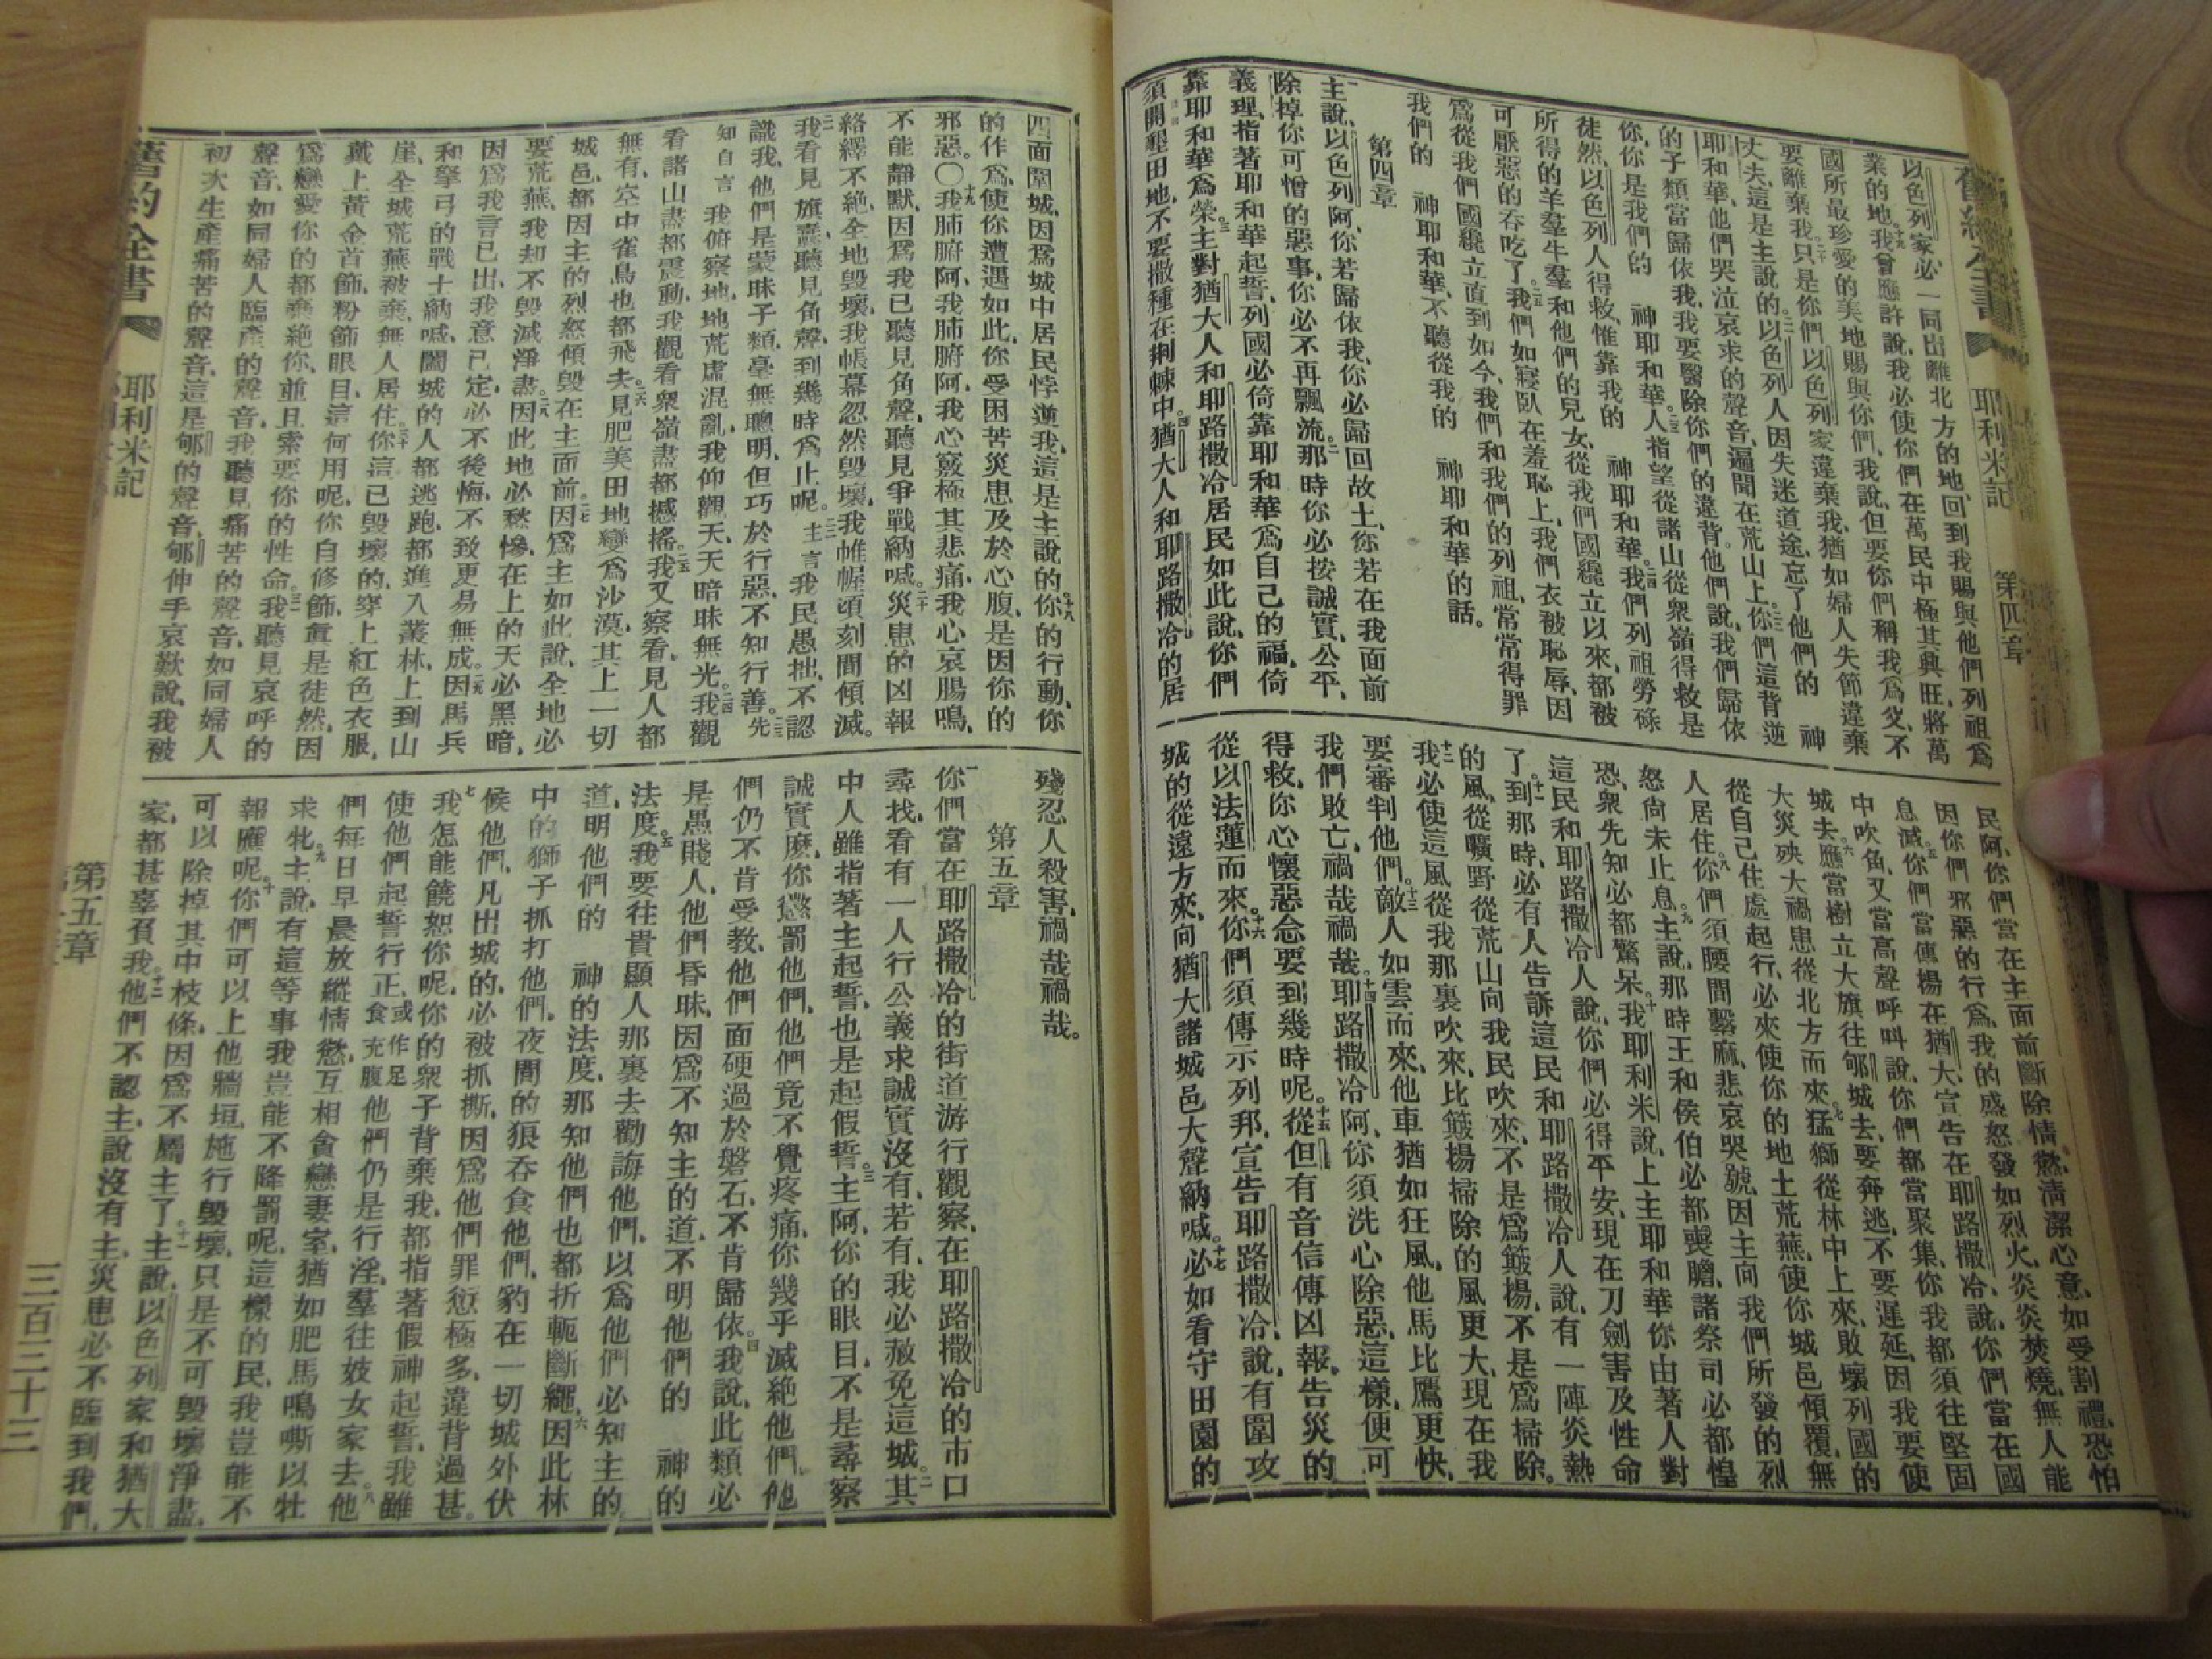 舊約全書 耶利米記 第四章
以色列家必一同出離北方的地回到我賜與他們列祖爲
業的地十九我曾應許說我必使你們在萬民中極其興旺將萬
國所最珍愛的美地賜與你們我說但要你們稱我爲父不
要離棄我二十只是你們以色列家違棄我猶如婦人失節違棄
丈夫這是主說的二一以色列人因失迷道途忘了他們的 神
耶和華他們哭泣哀求的聲音遍聞在荒山上二二你們這背逆
的子類當歸依我我要醫除你們的違背他們說我們歸依
你你是我們的 神耶和華二三人指望從諸山從衆嶺得救是
徒然以色列人得救惟靠我的 神耶和華二四我們列祖勞碌
所得的羊羣牛羣和他們的兒女從我們國纔立以來都被
可厭惡的吞吃了二五我們如寢臥在羞恥上我們衣被恥辱因
爲從我們國纔立直到如今我們和我們的列祖常常得罪
我們的 神耶和華不聽從我的 神耶和華的話。
第四章
一主說以色列阿你若歸依我你必歸回故土你若在我面前
除掉你可憎的惡事你必不再飄流二那時你必按誠實公平
義理指著耶和華起誓列國必倚靠耶和華爲自己的福倚
靠耶和華爲榮三主對猶大人和耶路撒冷居民如此說你們
須開墾田地不要撒種在荆棘中四猶大人和耶路撒冷的居
民阿你們當在主面前斷除情慾清潔心意如受割禮恐怕
因你們邪惡的行爲我的盛怒發如烈火炎炎焚燒無人能
息滅五你們當傳揚在猶大宣告在耶路撒冷說你們當在國
中吹角又當高聲呼叫說你們都當聚集你我都須往堅固
城去六應當樹立大旗往郇城去要奔逃不要遲延因我要使
大災殃大禍患從北方而來七猛獅從林中上來敗壞列國的
從自己住處起行必來使你的地土荒蕪使你城邑傾覆無
人居住八你們須腰間繫麻悲哀哭號因主向我們所發的烈
怒尙未止息九主說那時王和侯伯必都喪膽諸祭司必都惶
恐衆先知必都驚呆十我耶利米說上主耶和華你由著人對
這民和耶路撒冷人說你們必得平安現在刀劍害及性命
了十一到那時必有人告訴這民和耶路撒冷人說有一陣炎熱
的風從曠野從荒山向我民吹來不是爲簸揚不是爲掃除。
十二我必使這風從我那裏吹來比簸揚掃除的風更大現在我
要審判他們十三敵人如雲而來他車猶如狂風他馬比鷹更快
我們敗亡禍哉禍哉十四耶路撒冷阿你須洗心除惡這樣便可
得救你心懷惡念要到幾時呢十五從但有音信傳凶報告災的
從以法蓮而來十六你們須傳示列邦宣告耶路撒冷說有圍攻
城的從遠方來向猶大諸城邑大聲納喊十七必如看守田園的
四面圍城因爲城中居民悖逆我這是主說的十八你的行動你
的作爲使你遭遇如此你受困苦災患及於心腹是因你的
邪惡。〇十九我肺腑阿我肺腑阿我心竅極其悲痛我心哀腸鳴
不能靜默因爲我已聽見角聲聽見爭戰納喊二十災患的凶報
絡繹不絕全地毀壞我帳幕忽然毀壞我帷幄頃刻間傾滅。
二一我看見旗纛聽見角聲到幾時爲止呢二二主言我民愚拙不認
識我他們是蒙昧子類毫無聰明但巧於行惡不知行善二三先
知自言我俯察地地荒虛混亂我仰觀天天暗昧無光二四我觀
看諸山盡都震動我觀看衆嶺盡都撼搖二五我又察看見人都
無有空中雀鳥也都飛去二六見肥美田地變爲沙漠其上一切
城邑都因主的烈怒傾毀在主面前二七因爲主如此說全地必
要荒蕪我却不毀滅淨盡二八因此地必愁慘在上的天必黑暗
因爲我言已出我意已定必不後悔不致更易無成二九因馬兵
和拏弓的戰士納喊闔城的人都逃跑都進入叢林上到山
崖全城荒蕪被棄無人居住三十你這已毀壞的穿上紅色衣服
戴上黃金首飾粉飾眼目這何用呢你自修飾實是徒然因
爲戀愛你的都棄絕你並且索要你的性命三一我聽見哀呼的
聲音如同婦人臨產的聲音我聽見痛苦的聲音如同婦人
初次生產痛苦的聲音這是郇的聲音郇伸手哀歎說我被
殘忍人殺害禍哉禍哉。
第五章
一你們當在耶路撒冷的街道游行觀察在耶路撒冷的市口
尋找看有一人行公義求誠實沒有若有我必赦免這城二其
中人雖指著主起誓也是起假誓三主阿你的眼目不是尋察
誠實麽你懲罰他們他們竟不覺疼痛你幾乎滅絕他們他
們仍不肯受教他們面硬過於磐石不肯歸依四我說此類必
是愚賤人他們昏昧因爲不知主的道不明他們的 神的
法度五我要往貴顯人那裏去勸誨他們以爲他們必知主的
道明他們的 神的法度那知他們也都折軛斷繩六因此林
中的獅子抓打他們夜間的狼吞食他們豹在一切城外伏
候他們凡出城的必被抓撕因爲他們罪愆極多違背過甚。
七我怎能饒恕你呢你的衆子背棄我都指著假神起誓我雖
使他們起誓行正或作足食充腹他們仍是行淫羣往妓女家去八他
們每日早晨放縱情慾互相貪戀妻室猶如肥馬鳴嘶以牡
求牝九主說有這等事我豈能不降罰呢這樣的民我豈能不
報應呢十你們可以上他牆垣施行毀壞只是不可毀壞淨盡
可以除掉其中枝條因爲不屬主了十一主說以色列家和猶大
家都甚辜負我十二他們不認主說沒有主災患必不臨到我們
舊約全書 耶利米記 第五章 三百三十三